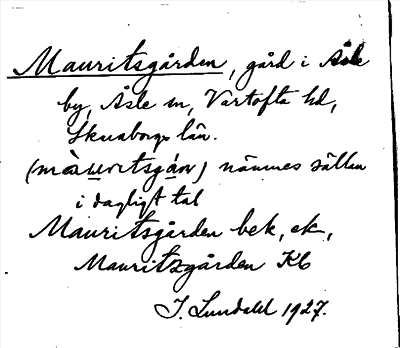 Mauritsgården, gård i Åsle
by, Åsle sn, Vartofta hd,
Skaraborgs län.
(màuritsgán) nämnes sällan
i dagligt tal
Mauritsgården bek, ek,
Mauritzgården Kb
I. Lundahl 1927.